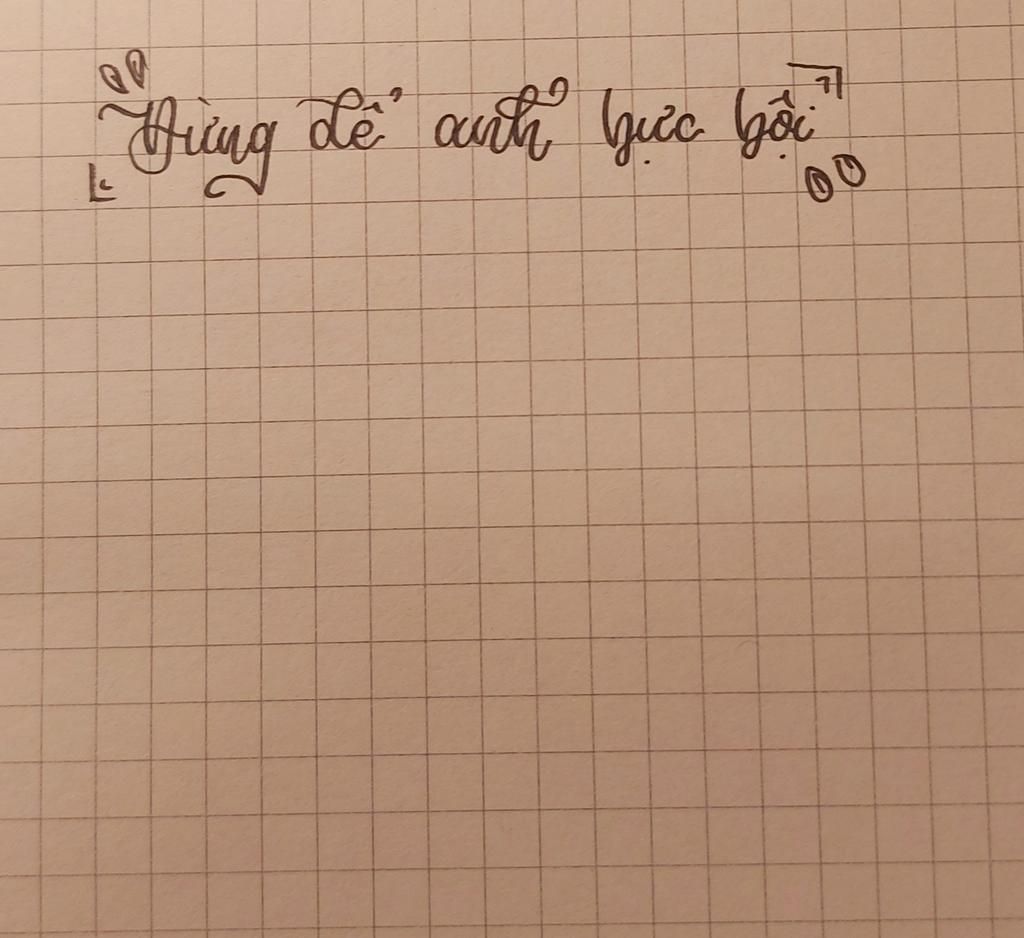 Đừng để anh bực bội